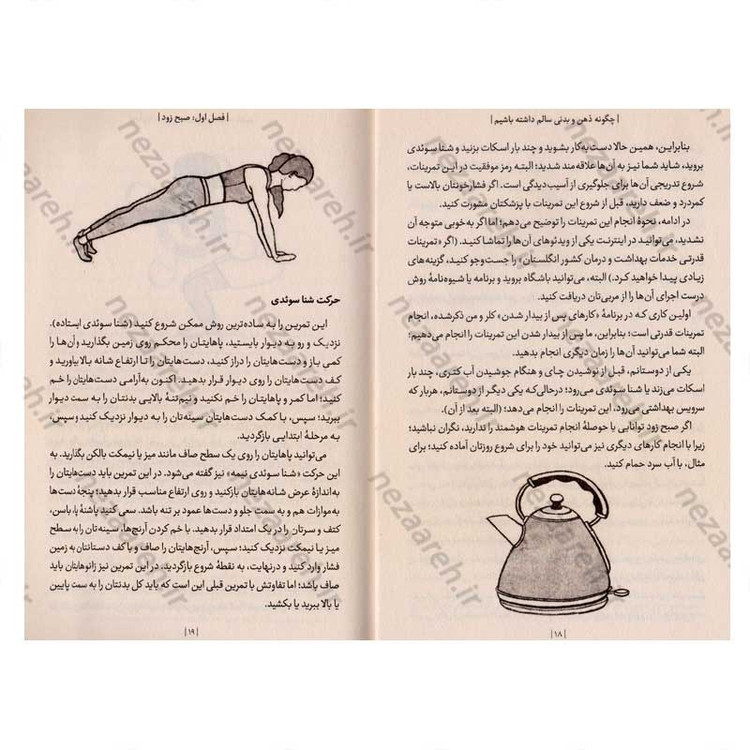 | چگونه ذهن و بدنی سالم داشته باشیم |
بنابراین، همین حالا دست‌به‌کار بشوید و چند بار اسکات بزنید و شنا سوئدی
بروید، شاید شما نیز به آن‌ها علاقه‌مند شدید؛ البته رمز موفقیت در این تمرینات،
شروع تدریجی آن‌ها برای جلوگیری از آسیب‌دیدگی است. اگر فشارخونتان بالاست یا
کمردرد و ضعف دارید، قبل از شروع این تمرینات با پزشکتان مشورت کنید.
در ادامه، نحوهٔ انجام این تمرینات را توضیح می‌دهم؛ اما اگر به خوبی متوجه آن
نشدید، می‌توانید در اینترنت یکی از ویدئوهای آن‌ها را تماشا کنید. (اگر «تمرینات
قدرتی خدمات بهداشت و درمان کشور انگلستان» را جست‌وجو کنید، گزینه‌های
زیادی پیدا خواهید کرد.) البته، می‌توانید باشگاه بروید و برنامه یا شیوه‌نامهٔ روش
درست اجرای آن‌ها را از مربی‌تان دریافت کنید.
اولین کاری که در برنامهٔ «کارهای پس از بیدار شدن» کلر و من ذکرشده، انجام
تمرینات قدرتی است؛ بنابراین، ما پس از بیدار شدن این تمرینات را انجام می‌دهیم؛
البته شما می‌توانید آن‌ها را زمان دیگری انجام بدهید.
یکی از دوستانم، قبل از نوشیدن چای و هنگام جوشیدن آب کتری، چند بار
اسکات می‌زند یا شنا سوئدی می‌رود؛ درحالی‌که یکی دیگر از دوستانم، هربار که
سرویس بهداشتی می‌رود، این تمرینات را انجام می‌دهد؛ (البته بعد از آن).
اگر صبح زود توانایی یا حوصلهٔ انجام تمرینات هوشمند را ندارید، نگران نباشید؛
زیرا با انجام کارهای دیگری نیز می‌توانید خود را برای شروع روزتان آماده کنید؛ برای
مثال، با آب سرد حمام کنید.
| ۱۸ |
| فصل اول: صبح زود |
حرکت شنا سوئدی
این تمرین را به ساده‌ترین روش ممکن شروع کنید (شنا سوئدی ایستاده).
نزدیک و رو به دیوار بایستید، پاهایتان را محکم روی زمین بگذارید و آن‌ها را
کمی باز و دست‌هایتان را دراز کنید، دست‌هایتان را تا ارتفاع شانه بالا بیاورید و
کف دست‌هایتان را روی دیوار قرار بدهید. اکنون به‌آرامی دست‌هایتان را خم
کنید؛ اما کمر و پاهایتان را خم نکنید و نیم‌تنهٔ بالایی بدنتان را به سمت دیوار
ببرید؛ سپس، با کمک دست‌هایتان سینه‌تان را به دیوار نزدیک کنید و سپس،
به مرحلهٔ ابتدایی بازگردید.
می‌توانید پاهایتان را روی یک سطح صاف مانند میز یا نیمکت بالکن بگذارید. به
این حرکت «شنا سوئدی نیمه» نیز گفته می‌شود. در این تمرین باید دست‌هایتان را
به‌اندازهٔ عرض شانه‌هایتان بازکنید و روی ارتفاع مناسب قرار بدهید؛ پنجهٔ دست‌ها
به‌موازات هم و به سمت جلو و دست‌ها عمود بر تنه باشد. سعی کنید پاشنهٔ پا، باسن،
کتف و سرتان را در یک امتداد قرار بدهید. با خم کردن آرنج‌ها، سینه‌تان را به سطح
میز یا نیمکت نزدیک کنید؛ سپس، آرنج‌هایتان را صاف و با کف دستانتان به زمین
فشار وارد کنید و درنهایت، به نقطهٔ شروع بازگردید. در این تمرین نیز زانوهایتان باید
صاف باشد؛ اما تفاوتش با تمرین قبلی این است که باید کل بدنتان را به سمت پایین
یا بالا ببرید یا بکشید.
| ۱۹ |
nezaareh.ir
nezaareh.ir
nezaareh.ir
nezaareh.ir
nezaareh.ir
nezaareh.ir